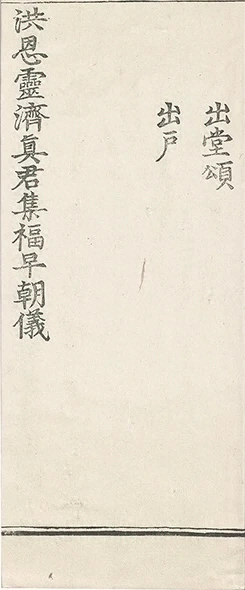 出堂頌
出戶
洪恩靈濟真君集福早朝儀